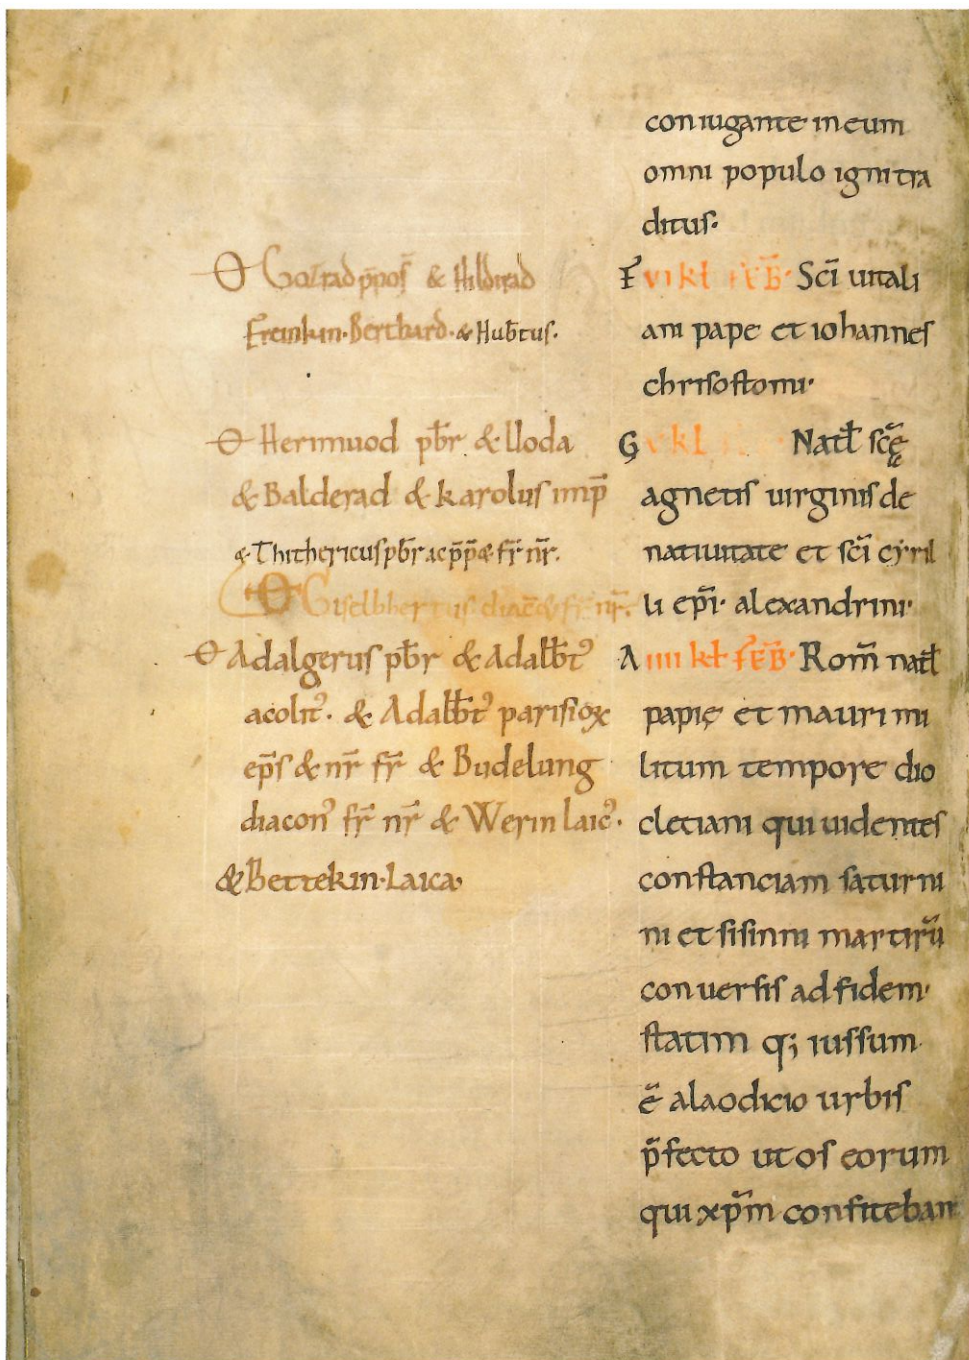 Ꝋ Co̅rad p̅pos̅ & Hildirad
Freinkin· Berthard· & Hub̅tus·
Ꝋ Herimuod pb̅r & lloda
& Balderad & karolus imp̅
& Thithericus pb̅r ac p̅p̅ & fr̅ nr̅.
Ꝋ Giselbhertus diac̅ & fr̅ nr̅.
Ꝋ Adalgerus pb̅r & Adalb̅tꝰ
acolitꝰ. & Adalb̅tꝰ parisioꝝ
ep̅s & nr̅ fr̅ & Budelung
diaconꝰ fr̅ nr̅ & Werin laicꝰ.
& Bettekin· Laica·
coniugante in eum
omni populo igni tra
ditus·
F vi kł feb̅· Sc̅i uitali
ani pape et iohannes
chrisostomi·
G v kł Natł sc̅ę
agnetis uirginis de
natiuitate et sc̅i cyril
li ep̅i· alexandrini·
A iiii kł feb̅· Rom̅ natł
papię et mauri mi
litum tempore dio
cletiani qui uidentes
constanciam saturni
ni et sisinni martiru̅
conuersis ad fidem·
statim q; iussum
e̅ alaodicio urbis
p̅fecto ut os eorum
qui xp̅m confiteban